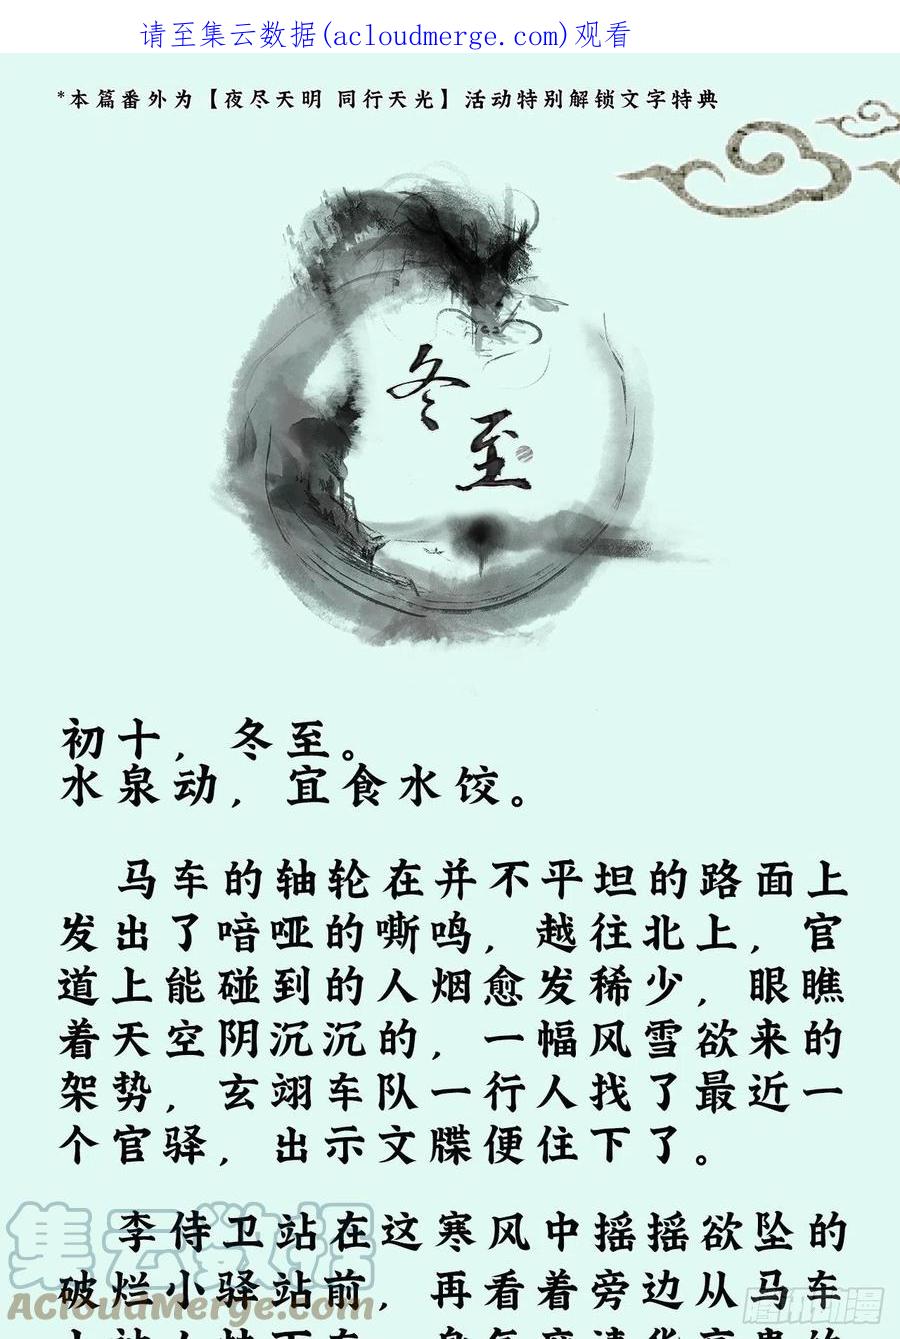 请至集云数据(acloudmerge.com)观看
*本篇番外为【夜尽天明 同行天光】活动特别解锁文字特典
冬至
初十，冬至。
水泉动，宜食水饺。
马车的轴轮在并不平坦的路面上
发出了喑哑的嘶鸣，越往北上，官
道上能碰到的人烟愈发稀少，眼瞧
着天空阴沉沉的，一幅风雪欲来的
架势，玄翊车队一行人找了最近一
个官驿，出示文牒便住下了。
李侍卫站在这寒风中摇摇欲坠的
破烂小驿站前，再看着旁边从马车
集云数据
AcloudMerge.com
腾讯动漫